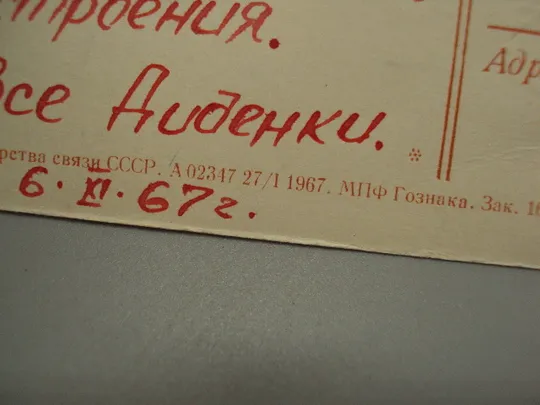 строения.
Все Дибенки.
Адр
рства связи СССР. А 02347 27/I 1967. МПФ Гознака. Зак. 16
6. XI. 67 г.